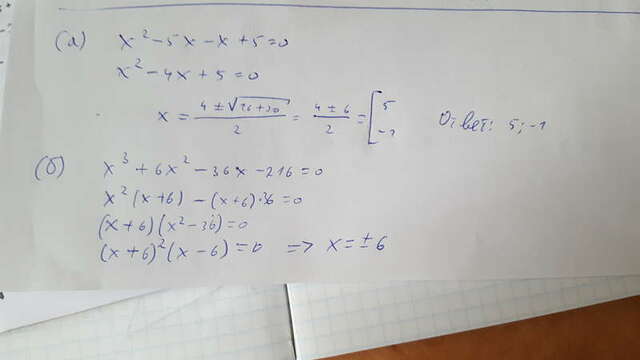 (a) x² - 5x - x + 5 = 0
x² - 4x + 5 = 0
x = (4 ± √(16 + 20)) / 2 = (4 ± 6) / 2 = [5; -1
Ответ: 5; -1
(б) x³ + 6x² - 36x - 216 = 0
x²(x + 6) - (x + 6)·36 = 0
(x + 6)(x² - 36) = 0
(x + 6)²(x - 6) = 0 => x = ± 6